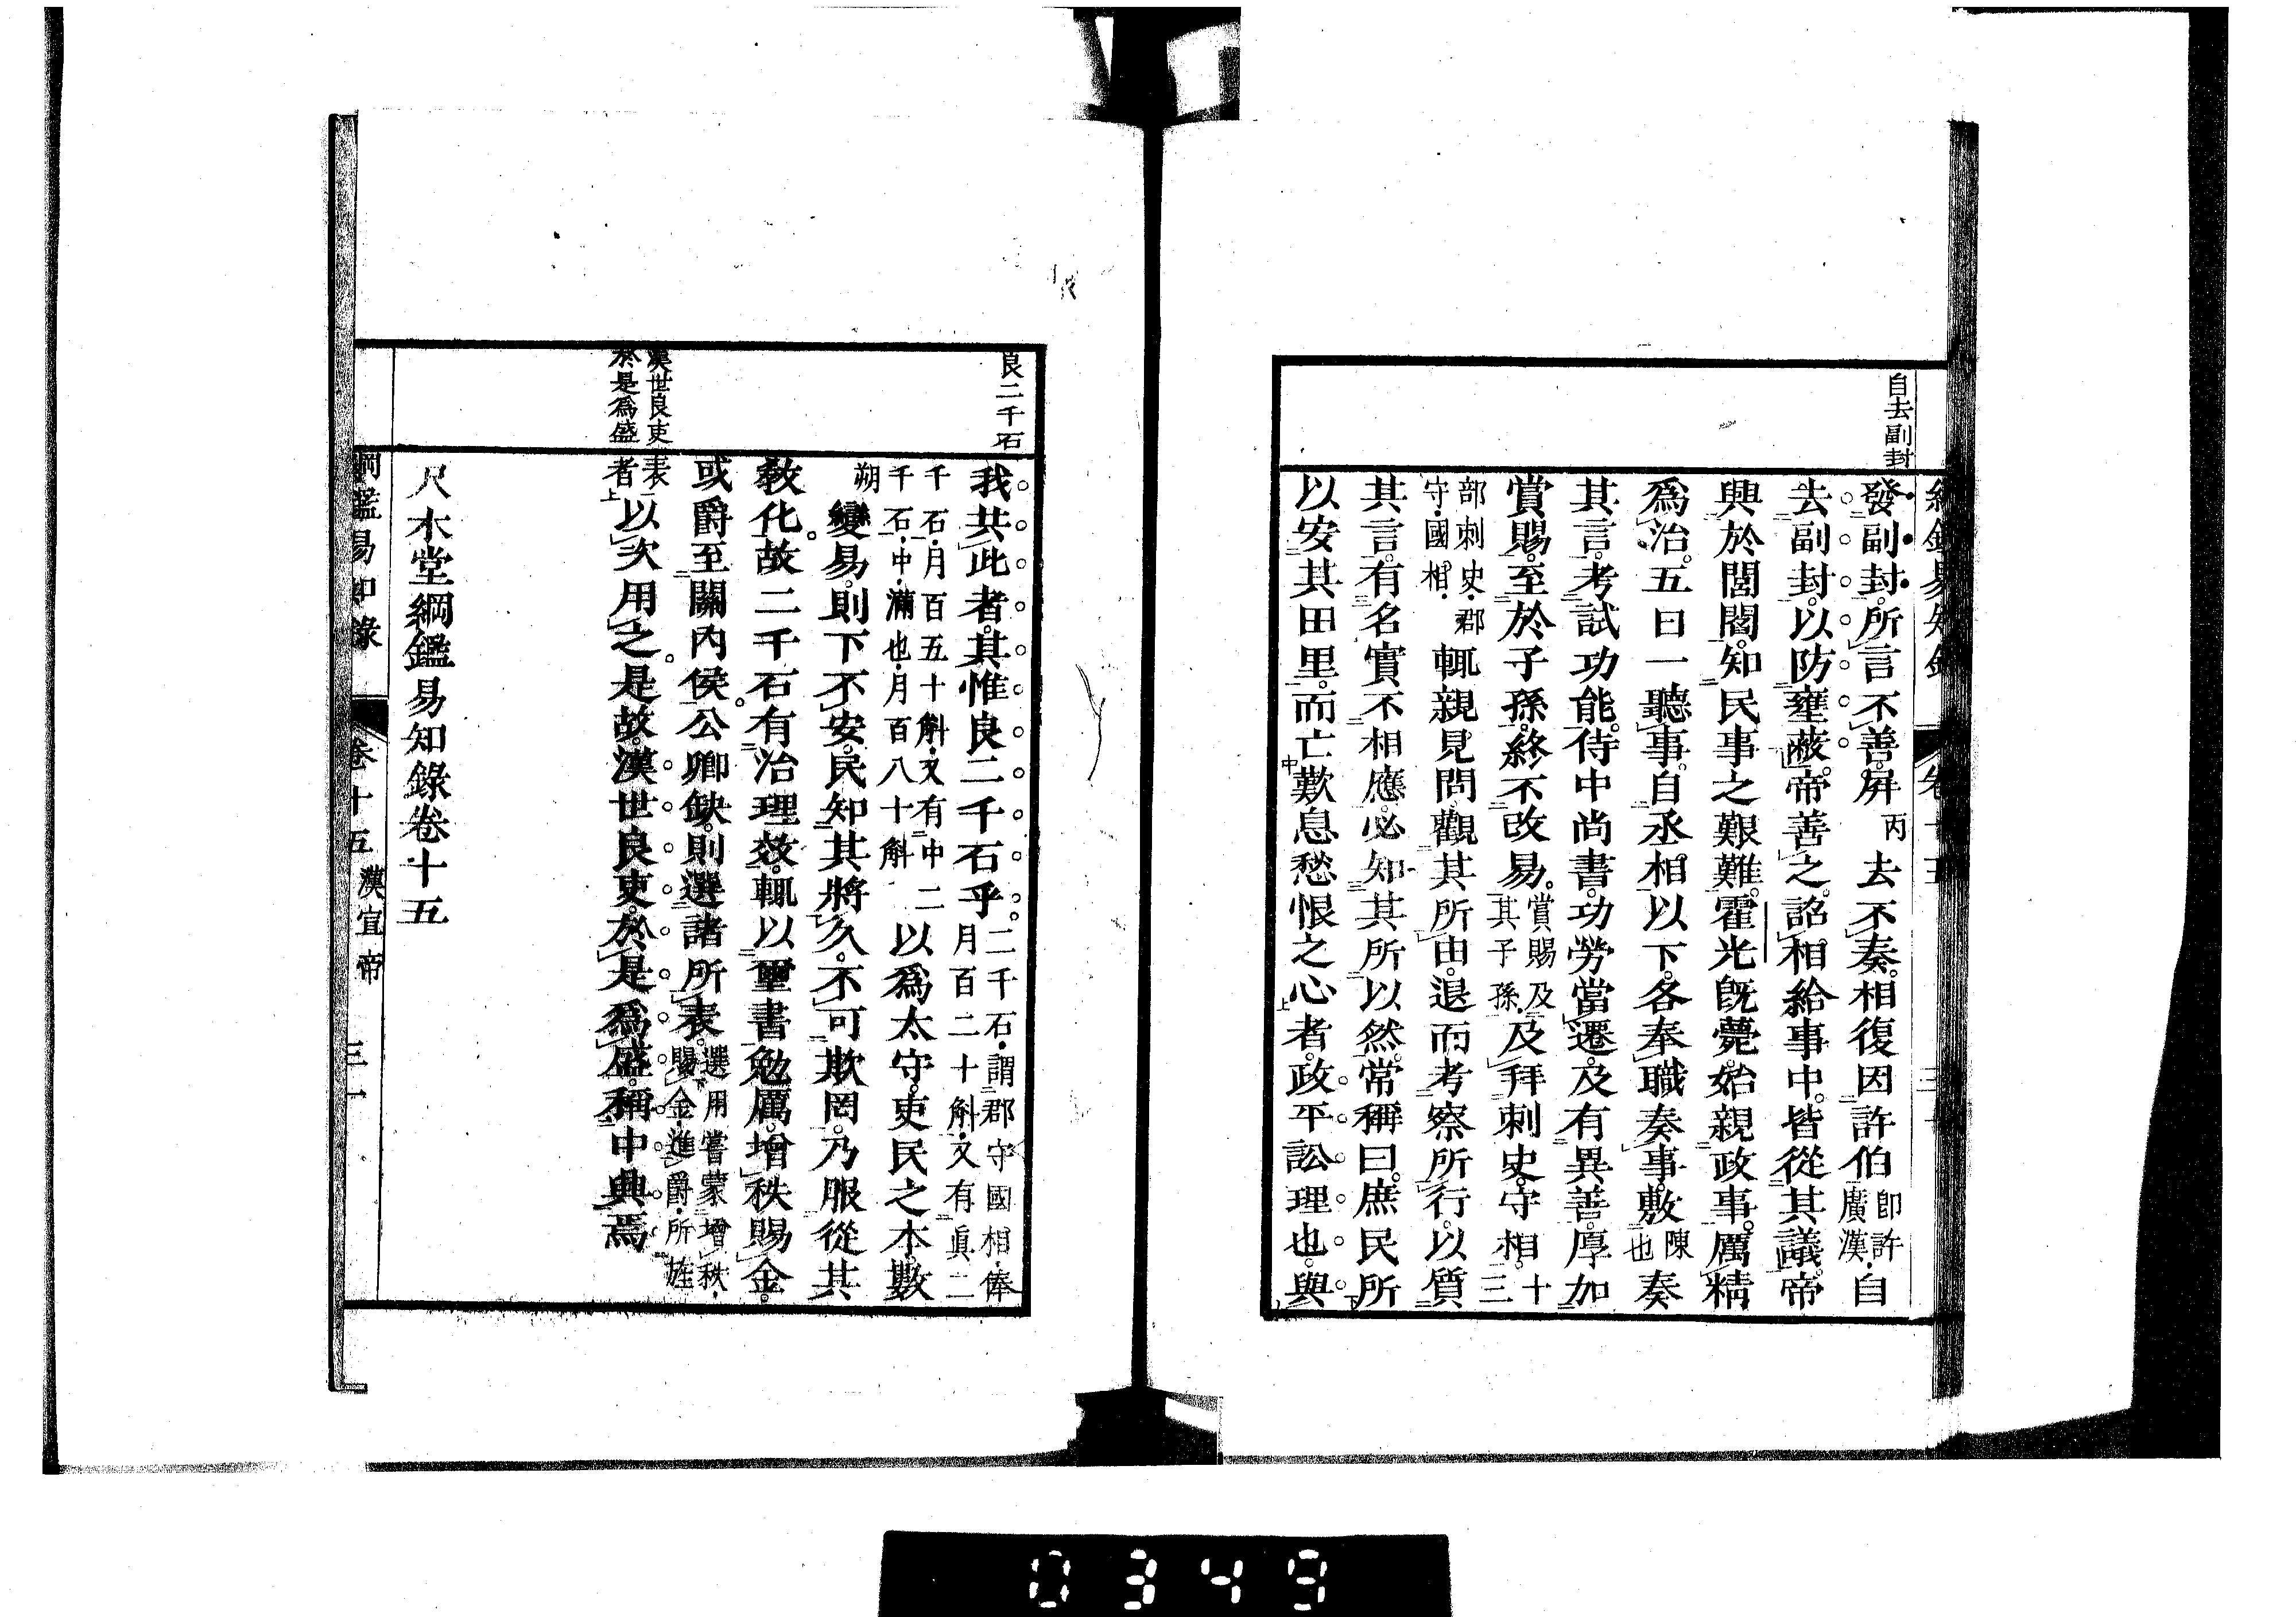 自去副封
發副封。所言不善。屏丙去不奏。相復因許伯卽許廣漢。自
去副封。以防壅蔽。帝善之。詔相給事中。皆從其議。帝
興於閭閻。知民事之艱難。霍光旣薨。始親政事。厲精
爲治。五日一聽事。自丞相以下。各奉職奏事。敷陳也奏
其言。考試功能。侍中尚書。功勞當遷。及有異善。厚加
賞賜。至於子孫。終不改易。賞賜及其子孫。及拜刺史守相。十三
部刺史。郡守。國相。輒親見問。觀其所由。退而考察所行。以質
其言。有名實不相應。必知其所以然。常稱曰。庶民所
以安其田里。而亡歎息愁恨之心者。政平訟理也。與
良二千石
我共此者。其惟良二千石乎。二千石。謂郡守國相。俸月百二十斛。又有眞二
千石。月百五十斛。又有中二千石。中。滿也。月百八十斛以爲太守。吏民之本。數
朔變易。則下不安。民知其將久。不可欺罔。乃服從其
敎化。故二千石有治理效。輒以璽書勉厲。增秩賜金。
或爵至關內侯。公卿缺。則選諸所表。選用嘗蒙增秩。賜金。進爵。所旌
漢世良吏於是爲盛
表者以次用之。是故漢世良吏。於是爲盛。稱中興焉
尺木堂綱鑑易知錄卷十五
綱鑑易知錄 卷十五 漢宣帝 三一